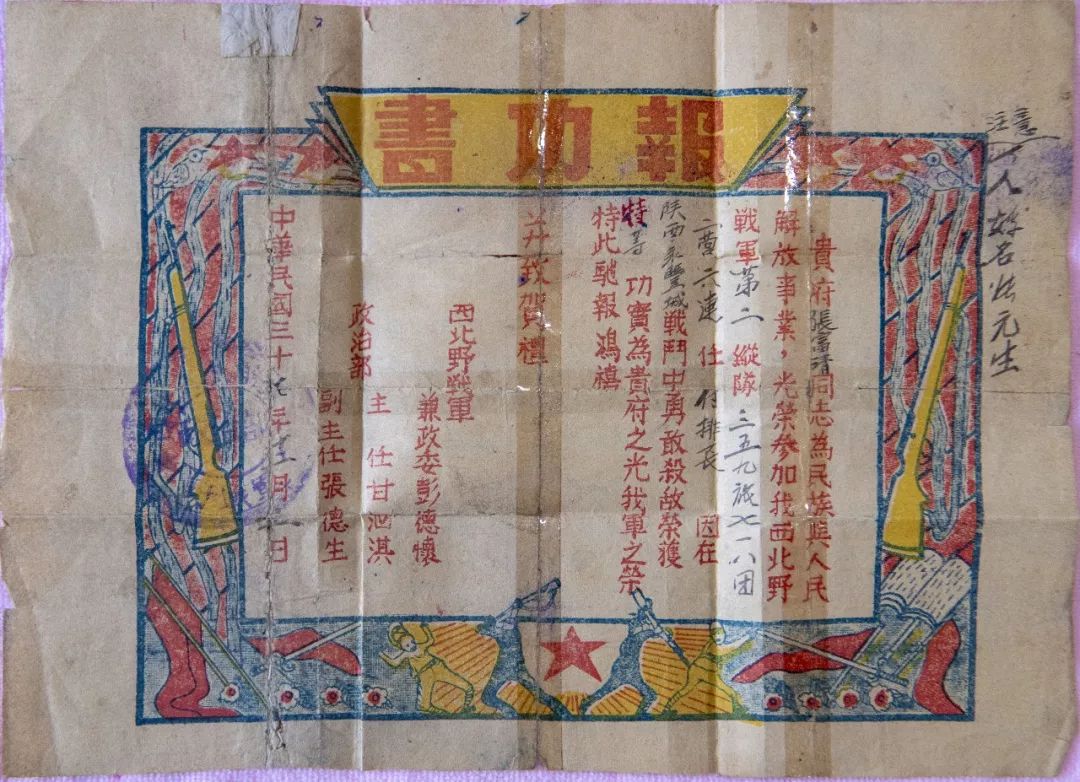 報功書
貴府張富清同志為民族與人民
解放事業，光榮參加我西北野
戰軍第二縱隊三五九旅七一八团
二营六連 任付排長 因在
陝西永豐城戰鬥中勇敢殺敵榮獲
特等 功實為貴府之光我軍之榮
特此馳報鴻禧
并致賀禮
西北野戰軍
兼政委彭德懷
政治部
主 任甘泗淇
副主任張德生
中華民國三十七年十二月 日
注意
人姓名 元生